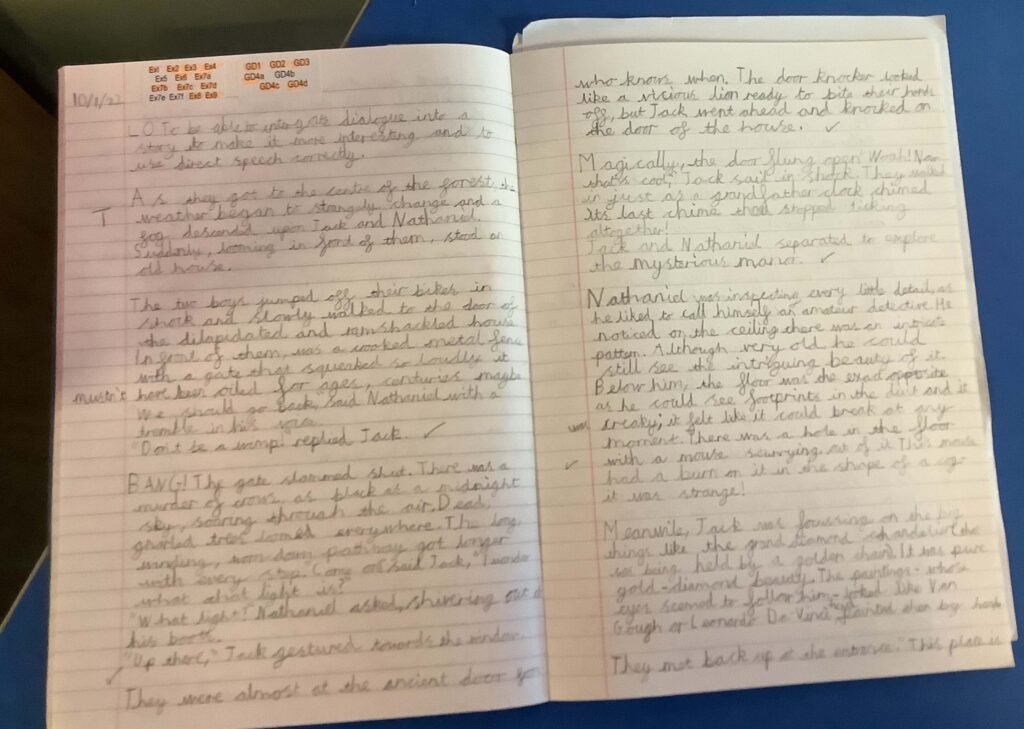 Ex1 Ex2 Ex3 Ex4 GD1 GD2 GD3
Ex5 Ex6 Ex7a GD4a GD4b
Ex7b Ex7c Ex7d GD4c GD4d
Ex7e Ex7f Ex8 Ex9
LO To be able to intergrate dialogue into a
story to make it more interesting and to
use direct speech correctly.
T
As they got to the centre of the forest, the
weather began to strangely change and a
fog descended upon Jack and Nathaniel.
Suddenly, looming in front of them, stood an
old house.
The two boys jumped off their bikes in
shock and slowly walked to the door of
the dilapidated and ramshackled house
In front of them, was a crooked metal fence
with a gate that squeaked so loudly it
mustn't have been oiled for ages, centuries maybe
We should go back," said Nathaniel with a
tremble in his voice.
"Don't be a wimp! replied Jack. ✓
BANG! The gate slammed shut. There was a
murder of crows, as black as a midnight
sky, soaring through the air. Dead,
gnarled trees loomed everywhere. The long
winding, run down pathway got longer
with every step. Come on said Jack, "I wonder
what that light is?"
"What light? Nathaniel asked, shivering out of
his boots.
"Up there," Jack gestured towards the window.
✓
They were almost at the ancient door from
who knows when. The door knocker looked
like a vicious lion ready to bite their hands
off, but Jack went ahead and knocked on
the door of the house. ✓
Magically, the door flung open "Woah! Now
that's cool," Jack said in shock. They walked
in just as a grandfather clock chimed
its last chime then stopped ticking
altogether!
Jack and Nathaniel separated to explore
the mysterious manor. ✓
Nathaniel was inspecting every little detail, as
he liked to call himself an amateur detective. He
noticed on the ceiling there was an intricate
pattern. Although very old he could
still see the intriguing beauty of it.
Below him, the floor was the exact opposite
as he could see footprints in the dust and it
was creaky; it felt like it could break at any
moment. There was a hole in the floor
✓ with a mouse scurrying out of it. This mouse
had a burn on it in the shape of a
it was strange!
Meanwile, Jack was focussing on the big
things like the grand diamond chandelier that
was being held by a golden chain. It was pure
gold-diamond beauty. The paintings - whose
eyes seemed to follow him - looked like Van
Gough or Leonardo Da Vinci painted them by hand
They met back up at the entrance. "This place is